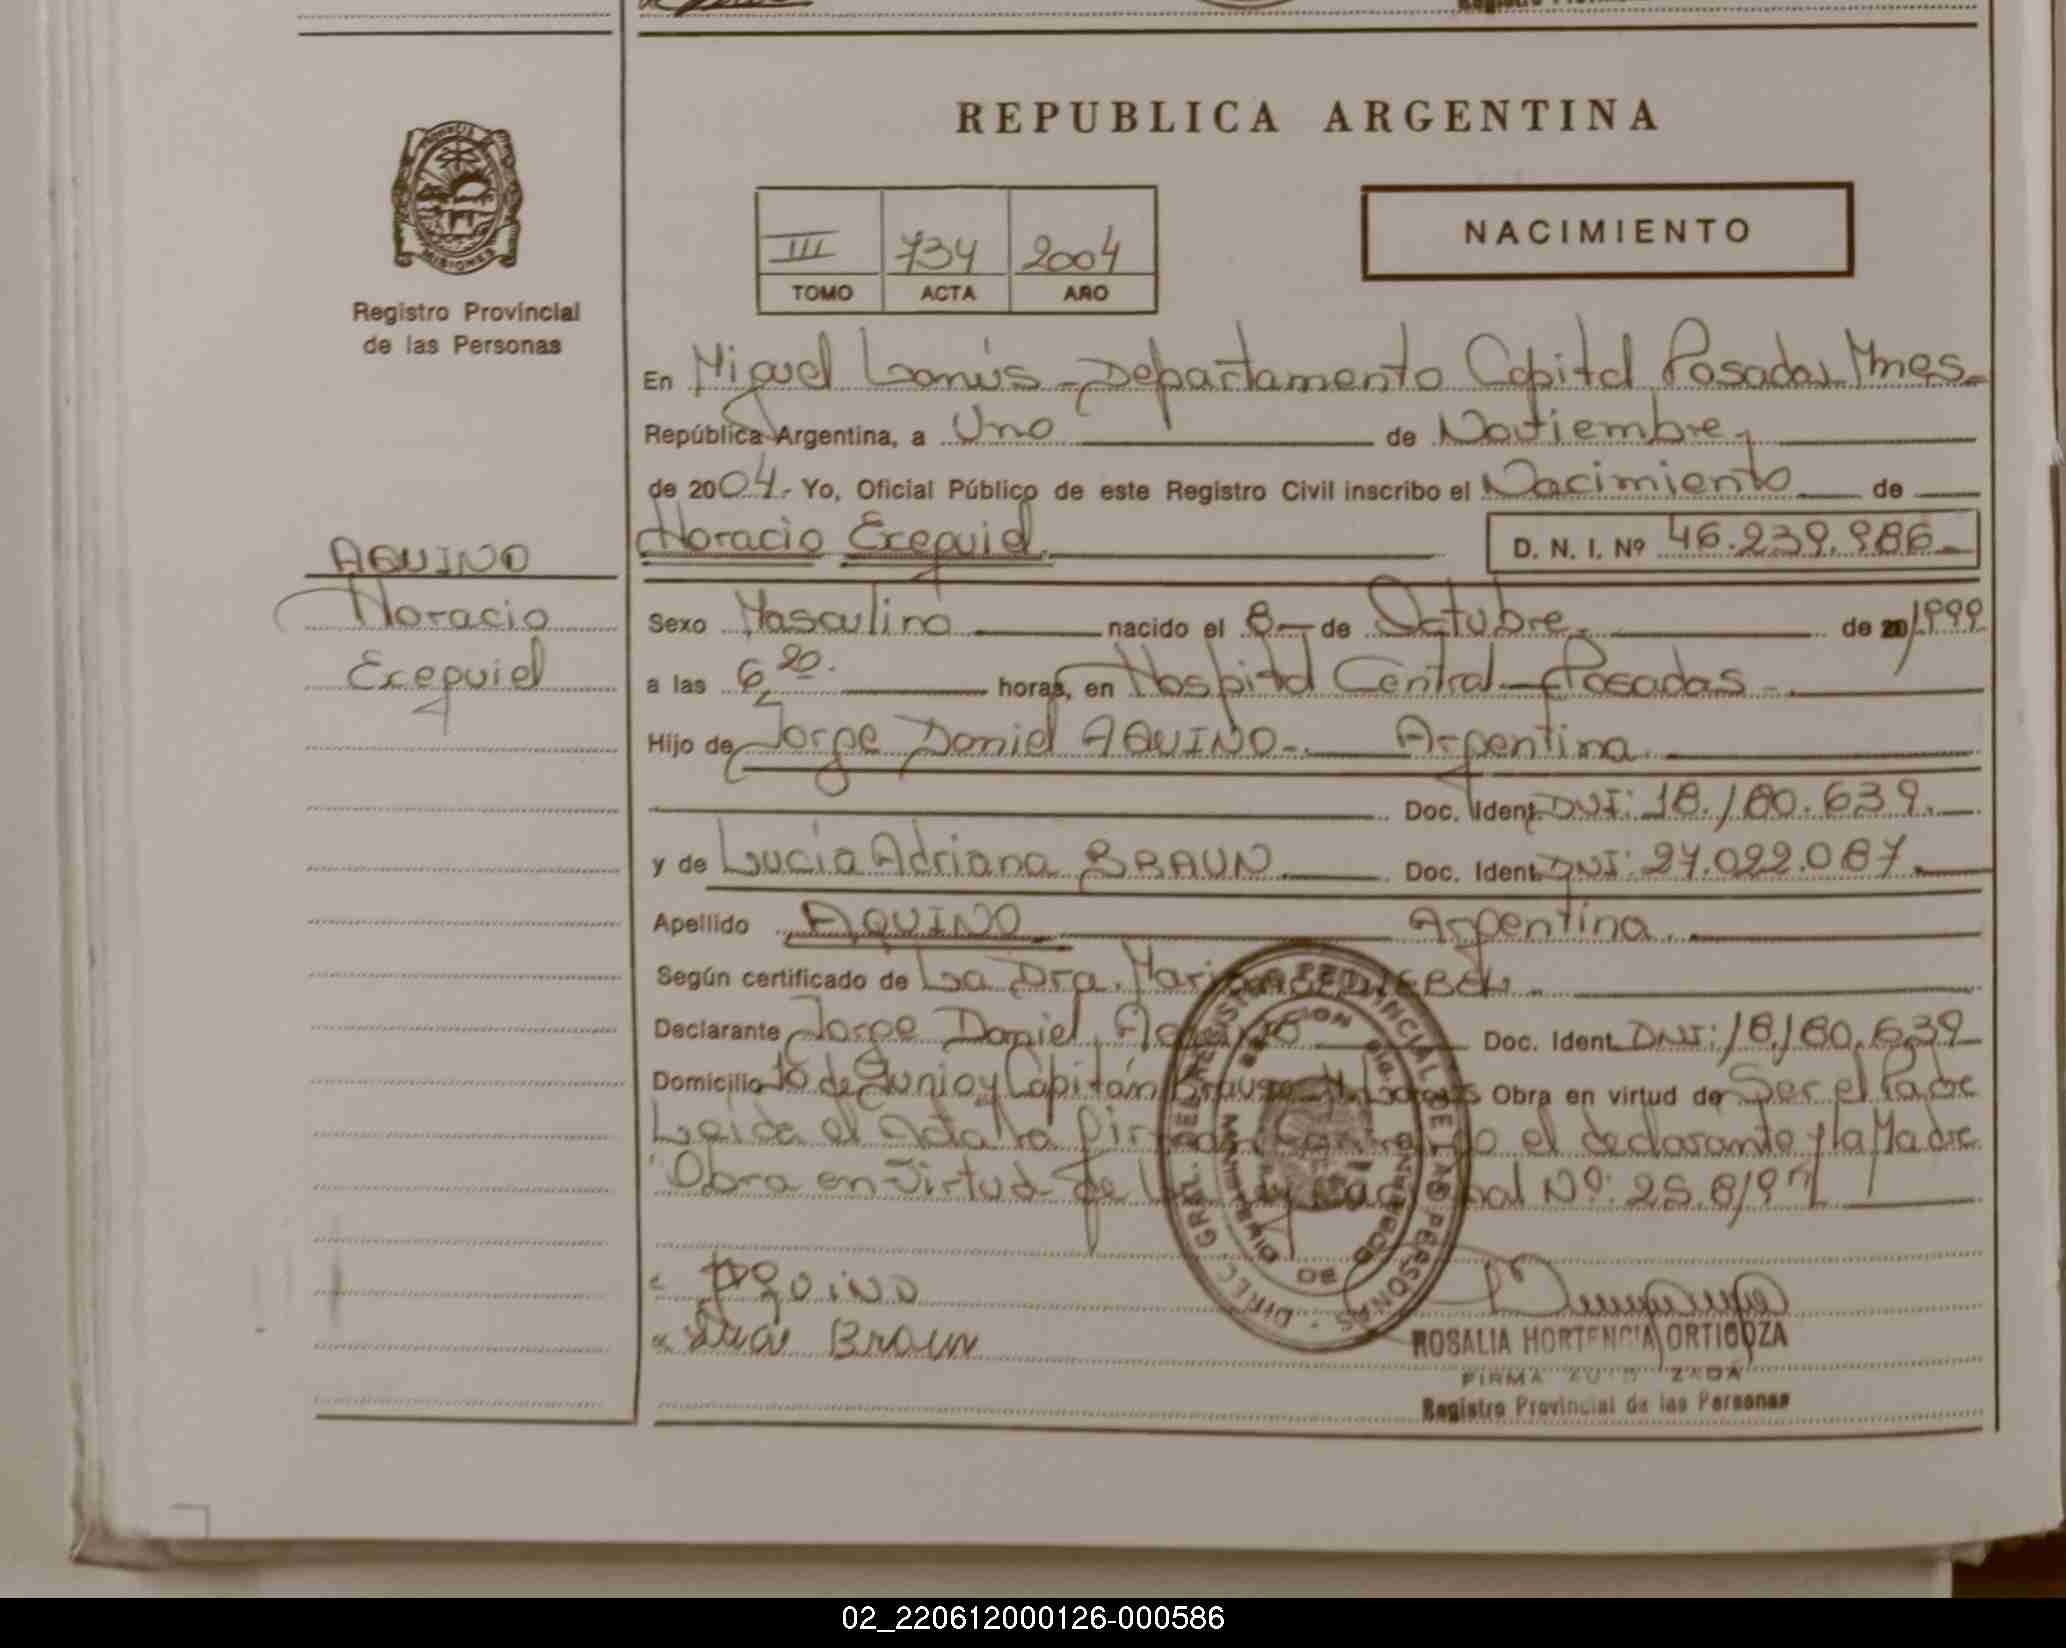 REPUBLICA ARGENTINA
MISIONES
Registro Provincial
de las Personas
NACIMIENTO
III 734 2004
TOMO ACTA AÑO
En Miguel Lanús - Departamento Capital Posadas Mnes.
República Argentina, a Uno de Noviembre,
de 2004. Yo, Oficial Público de este Registro Civil inscribo el Nacimiento de
Horacio Exequiel. D. N. I. Nº 46.239.986.
AQUINO
Horacio
Exequiel
Sexo Masculino nacido el 8 de Octubre. de 20/1999
a las 6,20. horas, en Hospital Central - Posadas -
Hijo de Jorge Daniel AQUINO.- Argentina.
Doc. Ident. DNI: 18.180.639.
y de Lucía Adriana BRAUN. Doc. Ident. DNI: 27.022.087.
Apellido AQUINO. Argentina.
Según certificado de La Dra.
Declarante Jorge Daniel Aquino Doc. Ident. DNI: 18.180.639
Domicilio de Junio y Capitán Obra en virtud de Ser el Padre
Leida el Acta la el declarante y la Madre
Obra en Virtud de Nº: 25.819
Aquino
Braun
DIREC. GRAL. DEL REGISTRO PROVINCIAL DE LAS PERSONAS
ROSALIA HORTENCIA ORTIGOZA
FIRMA AUTORIZADA
Registro Provincial de las Personas
02_220612000126-000586